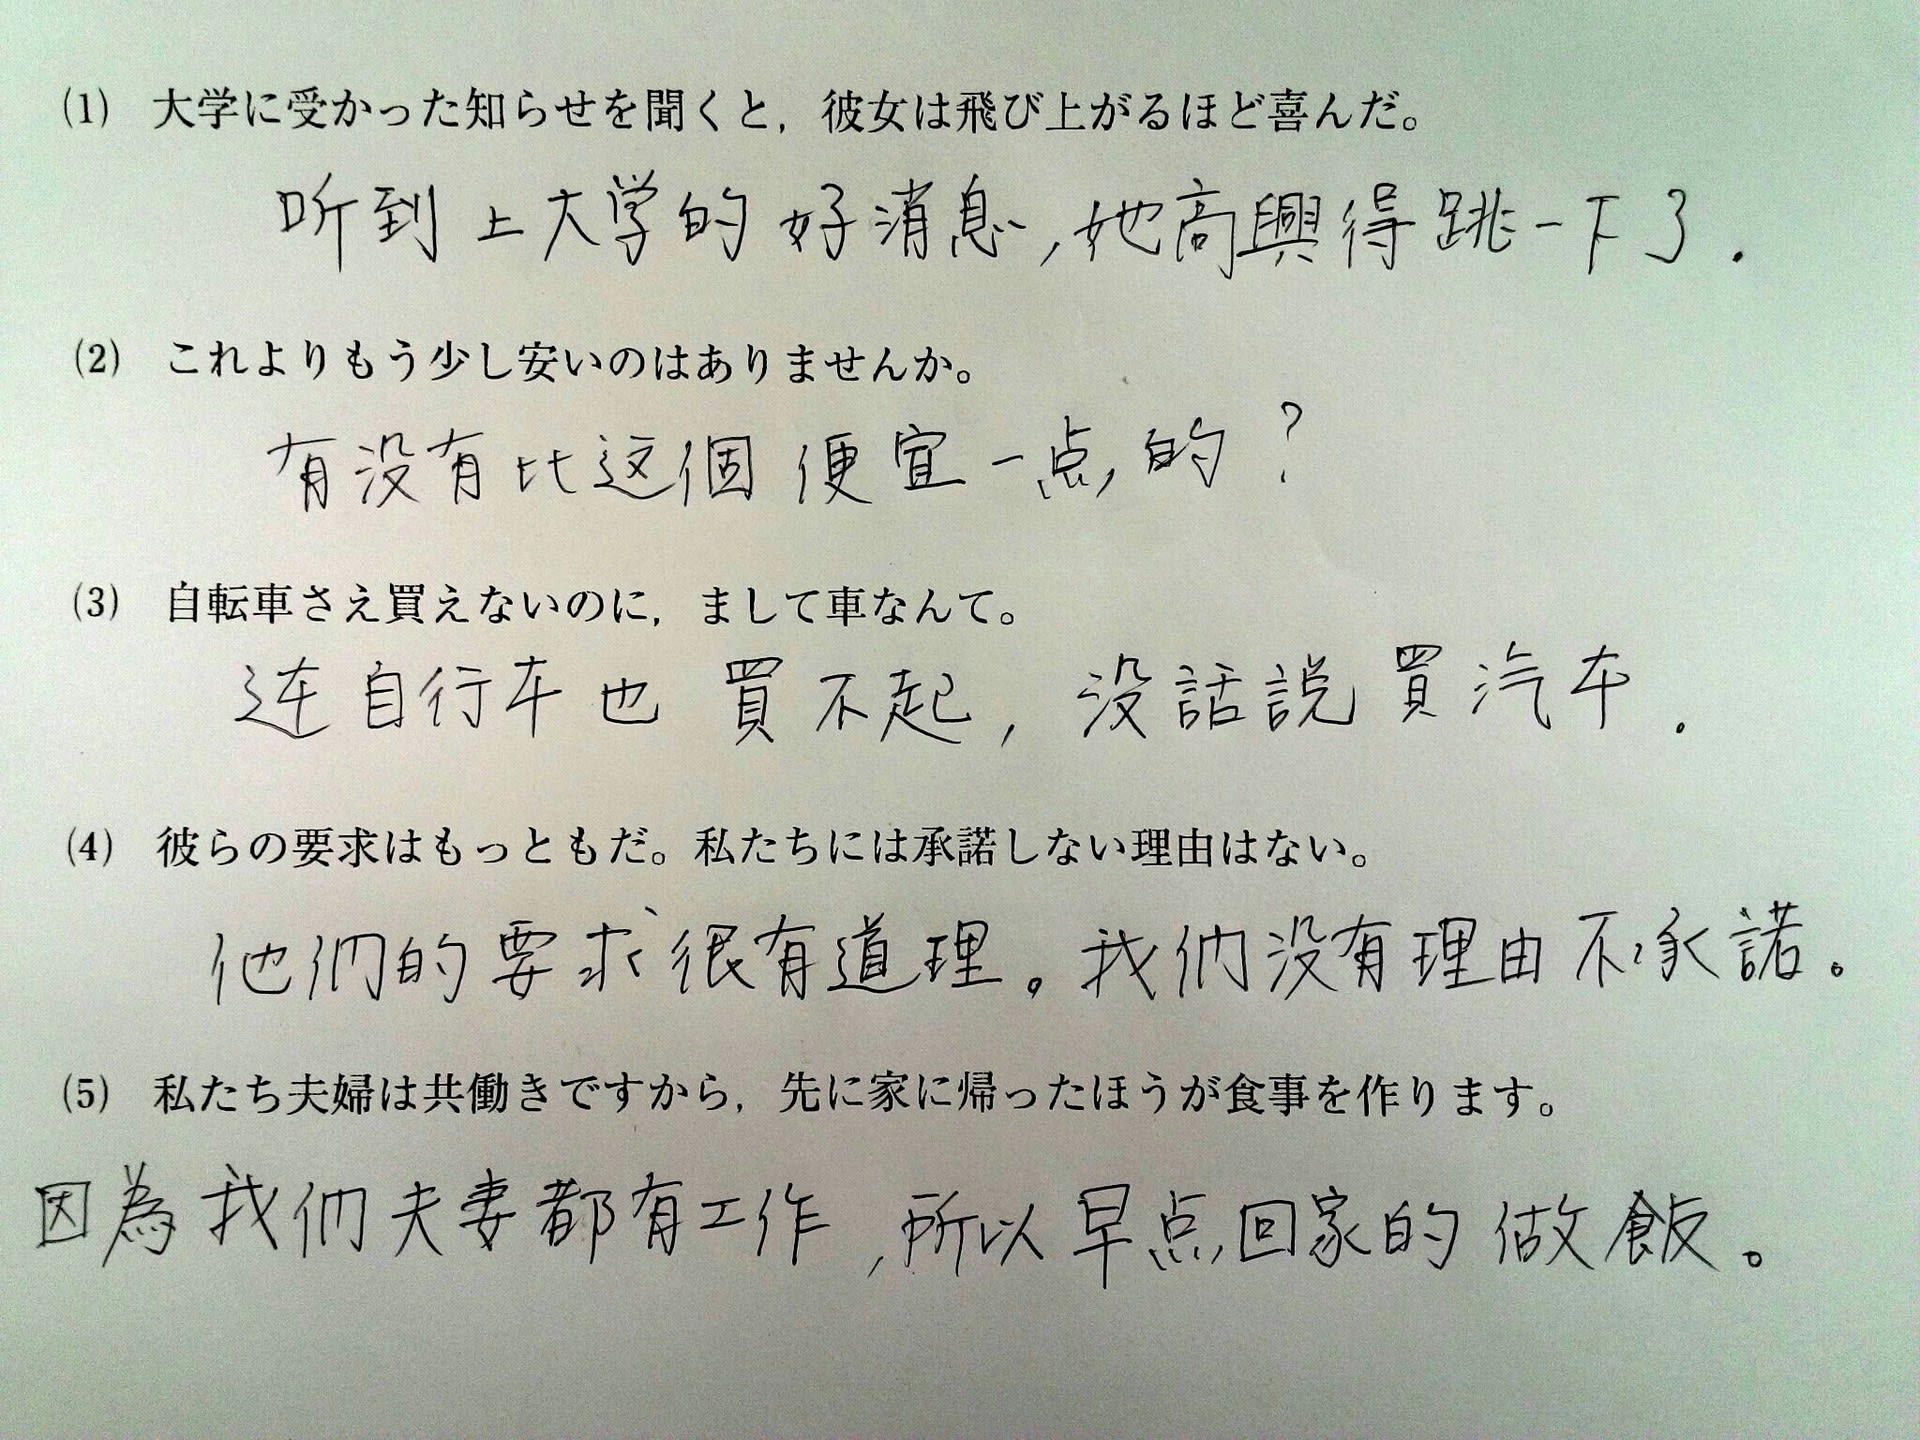 (1) 大学に受かった知らせを聞くと，彼女は飛び上がるほど喜んだ。
听到上大学的好消息,她高興得跳一下了.
(2) これよりもう少し安いのはありませんか。
有没有比这個便宜一点的？
(3) 自転車さえ買えないのに，まして車なんて。
连自行车也買不起,没話説買汽车.
(4) 彼らの要求はもっともだ。私たちには承諾しない理由はない。
他們的要求很有道理。我们没有理由不承諾。
(5) 私たち夫婦は共働きですから，先に家に帰ったほうが食事を作ります。
因為我们夫妻都有工作,所以早点回家的做飯。